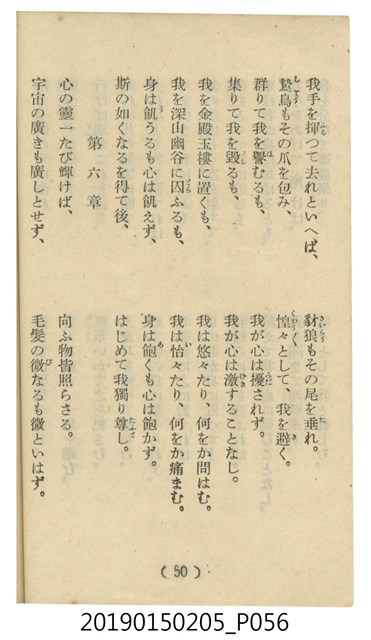 我手を揮つて去れといへば、
豺狼もその尾を垂れ。
鷙鳥もその爪を包み、
惶々として、我を避く。
群りて我を譽むるも、
我が心は擾されず。
集りて我を毀るも、
我が心は激することなし。
我を金殿玉樓に置くも、
我は悠々たり、何をか問はむ。
我を深山幽谷に囚ふるも、
我は怡々たり、何をか痛まむ。
身は飢うるも心は飢えず、
身は飽くも心は飽かず。
斯の如くなるを得て後、
はじめて我獨り尊し。
第六章
心の靈一たび輝けば、
向ふ物皆照らさる。
宇宙の廣きも廣しとせず、
毛髮の微なるも微といはず。
( 50 )
20190150205_P056